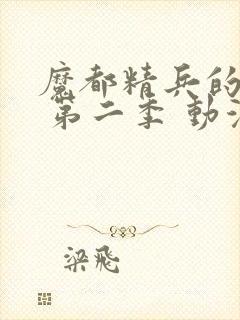 魔都精兵的
第二季 動漫
梁飛